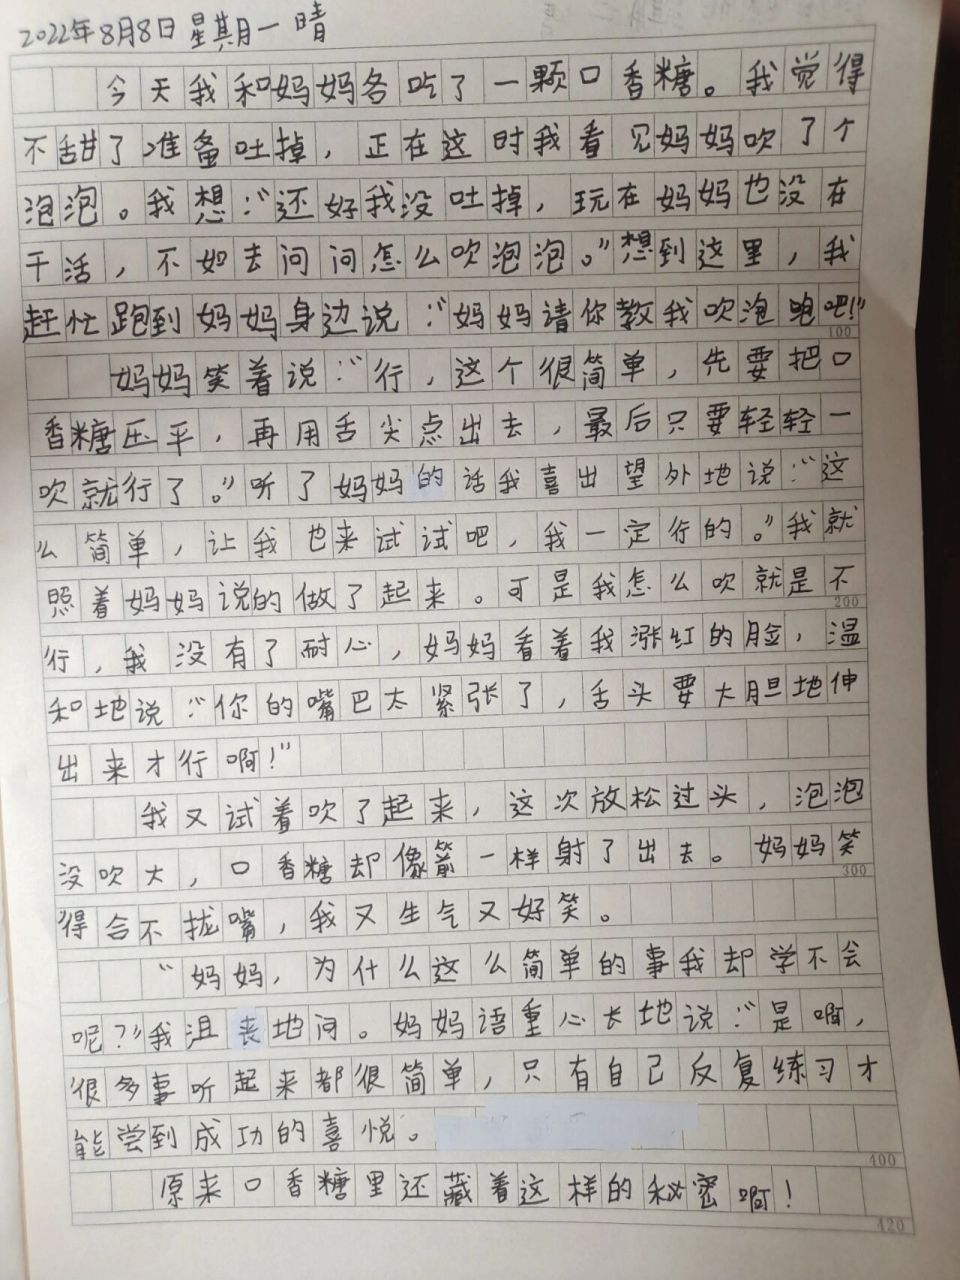 2022年8月8日 星期一 晴
今天我和妈妈各吃了一颗口香糖。我觉得
不甜了准备吐掉，正在这时我看见妈妈吹了个
泡泡。我想：“还好我没吐掉，玩在妈妈也没在
干活，不如去问问怎么吹泡泡。”想到这里，我
赶忙跑到妈妈身边说：“妈妈请你教我吹泡跑吧！”
100
妈妈笑着说：“行，这个很简单，先要把口
香糖压平，再用舌尖点出去，最后只要轻轻一
吹就行了。”听了妈妈的话我喜出望外地说：“这
么简单，让我也来试试吧，我一定行的。”我就
照着妈妈说的做了起来。可是我怎么吹就是不
200
行，我没有了耐心，妈妈看着我涨红的脸，温
和地说：“你的嘴巴太紧张了，舌头要大胆地伸
出来才行啊！”
我又试着吹了起来，这次放松过头，泡泡
没吹大，口香糖却像箭一样射了出去。妈妈笑
300
得合不拢嘴，我又生气又好笑。
“妈妈，为什么这么简单的事我却学不会
呢？”我沮丧地问。妈妈语重心长地说：“是啊，
很多事听起来都很简单，只有自己反复练习才
能尝到成功的喜悦。
400
原来口香糖里还藏着这样的秘密啊！
420